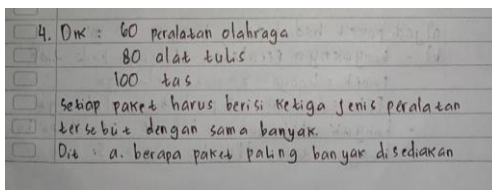 4. Dik : 60 peralatan olahraga
80 alat tulis
100 tas
Setiap paket harus berisi ketiga jenis peralatan
tersebut dengan sama banyak.
Dit : a. berapa paket paling banyak disediakan